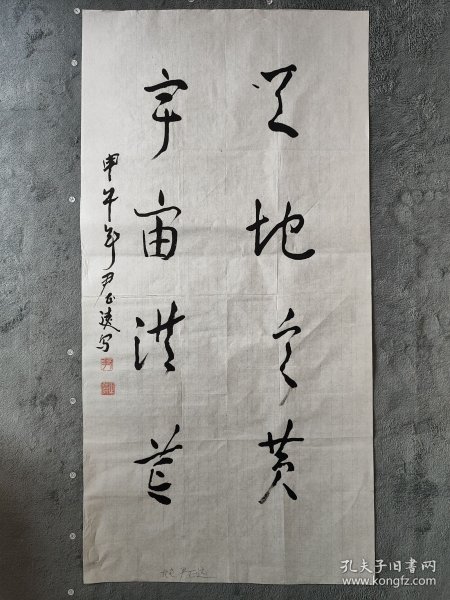 天地玄黄
宇宙洪荒
甲午年尹正写
孔夫子旧书网
www.kongfz.com